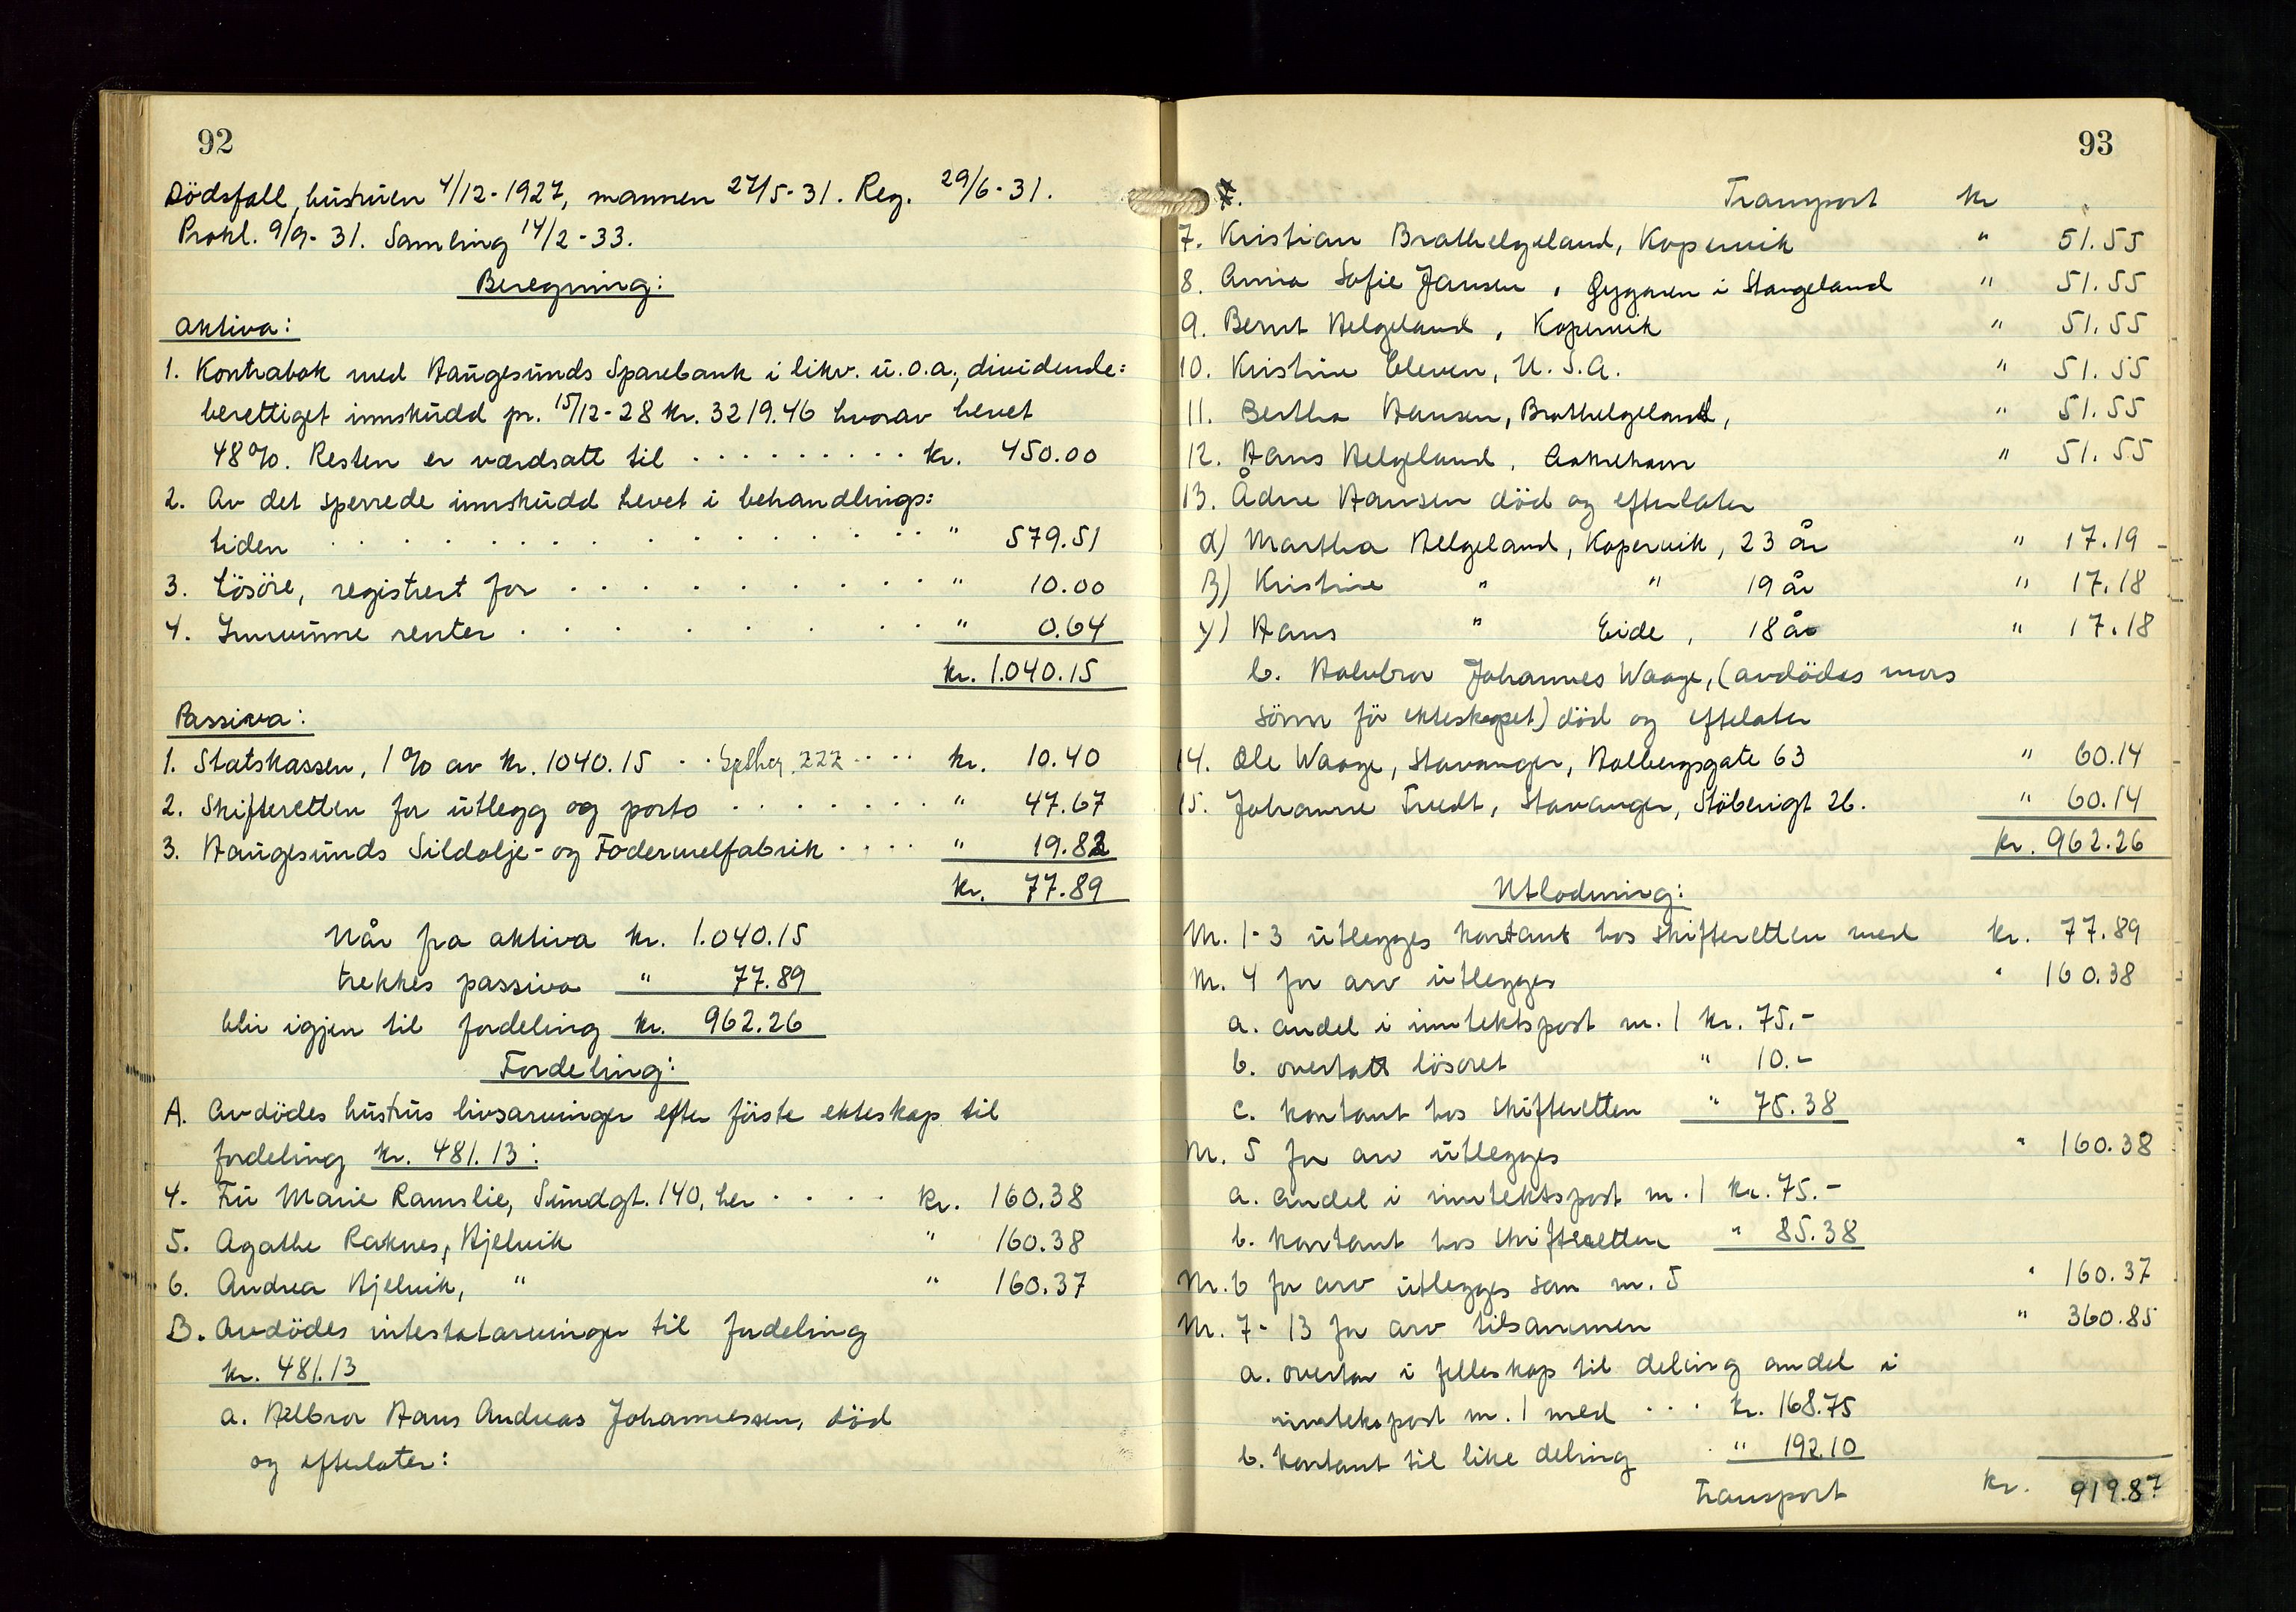 92
Dödsfall, hustruen 4/12-1927, mannen 27/5-31. Reg. 29/6-31.
Prokl. 9/9-31. Samling 14/2-33.
Beregning:
Aktiva:
1. Kontrabok med Haugesunds Sparebank i likv. u.o.a., dividende=
berettiget innskudd pr. 15/12-28 kr. 3219.46 hvorav hevet
48%. Resten er verdsatt til . . . . . . . . . kr. 450.00
2. Av det sperrede innskudd hevet i behandlings=
tiden . . . . . . . . . . . . . . " 579.51
3. Lösöre, registrert for . . . . . . . . . " 10.00
4. Innvunne renter . . . . . . . . " 0.64
kr. 1.040.15
Passiva:
1. Statskassen, 1% av kr. 1040.15 . . . . . . kr. 10.40
2. Skifteretten for utlegg og porto . . . . . . . . " 47.67
3. Haugesunds Sildolje- og Fodermelfabrik . . . . " 19.82
kr. 77.89
Når fra aktiva kr. 1.040.15
trekkes passiva " 77.89
blir igjen til fordeling kr. 962.26
Fordeling:
A. Avdödes hustrus livsarvinger efter förste ekteskap til
fordeling kr. 481.13:
4. Fru Marie Ramslie, Sundgt. 140, her . . . . kr. 160.38
5. Agathe Raknes, Hjelvik " 160.38
6. Andrea Hjelvik, " " 160.37
B. Avdödes intestatarvinger til fordeling
kr. 481.13
a. Helbror Hans Andreas Johannessen, död
og efterlater:
93
Transport kr
7. Kristian Brathelgeland, Kopervik " 51.55
8. Anna Sofie Jansen, i Stangeland " 51.55
9. Bernt Helgeland, Kopervik " 51.55
10. Kristine Eleven, U.S.A. " 51.55
11. Bertha Hansen, Brathelgeland, " 51.55
12. Hans Helgeland, Aakrehavn " 51.55
13. Ådne Hansen död og efterlater
α) Martha Helgeland, Kopervik, 23 år " 17.19
β) Kristine " " 19 år " 17.18
γ) Hans " Eide, 18 år " 17.18
b. Halvbror Johannes Waage, (avdödes mors
sönn för ekteskapet) död og eftelater
14. Ole Waage, Stavanger, Holbergsgate 63 " 60.14
15. Johanne Tvedt, Stavanger, Stöberigt 26. " 60.14
kr. 962.26
Utlodning:
Nr. 1-3 utlegges kontant hos skifteretten med kr. 77.89
Nr. 4 for arv utlegges " 160.38
a. andel i inntektspost nr. 1 kr. 75.-
b. overtatt lösöret " 10.-
c. kontant hos skifteretten " 75.38
Nr. 5 for arv utlegges " 160.38
a. andel i inntektspost nr. 1 kr. 75.-
b. kontant hos skifteretten " 85.38
Nr. 6 for arv utlegges som nr. 5 " 160.37
Nr. 7-13 for arv tilsammen " 360.85
a. overtar i felleskap til deling andel i
inntekspost nr. 1 med . . . kr. 168.75
b. kontant til like deling . " 192.10
Transport kr. 919.87